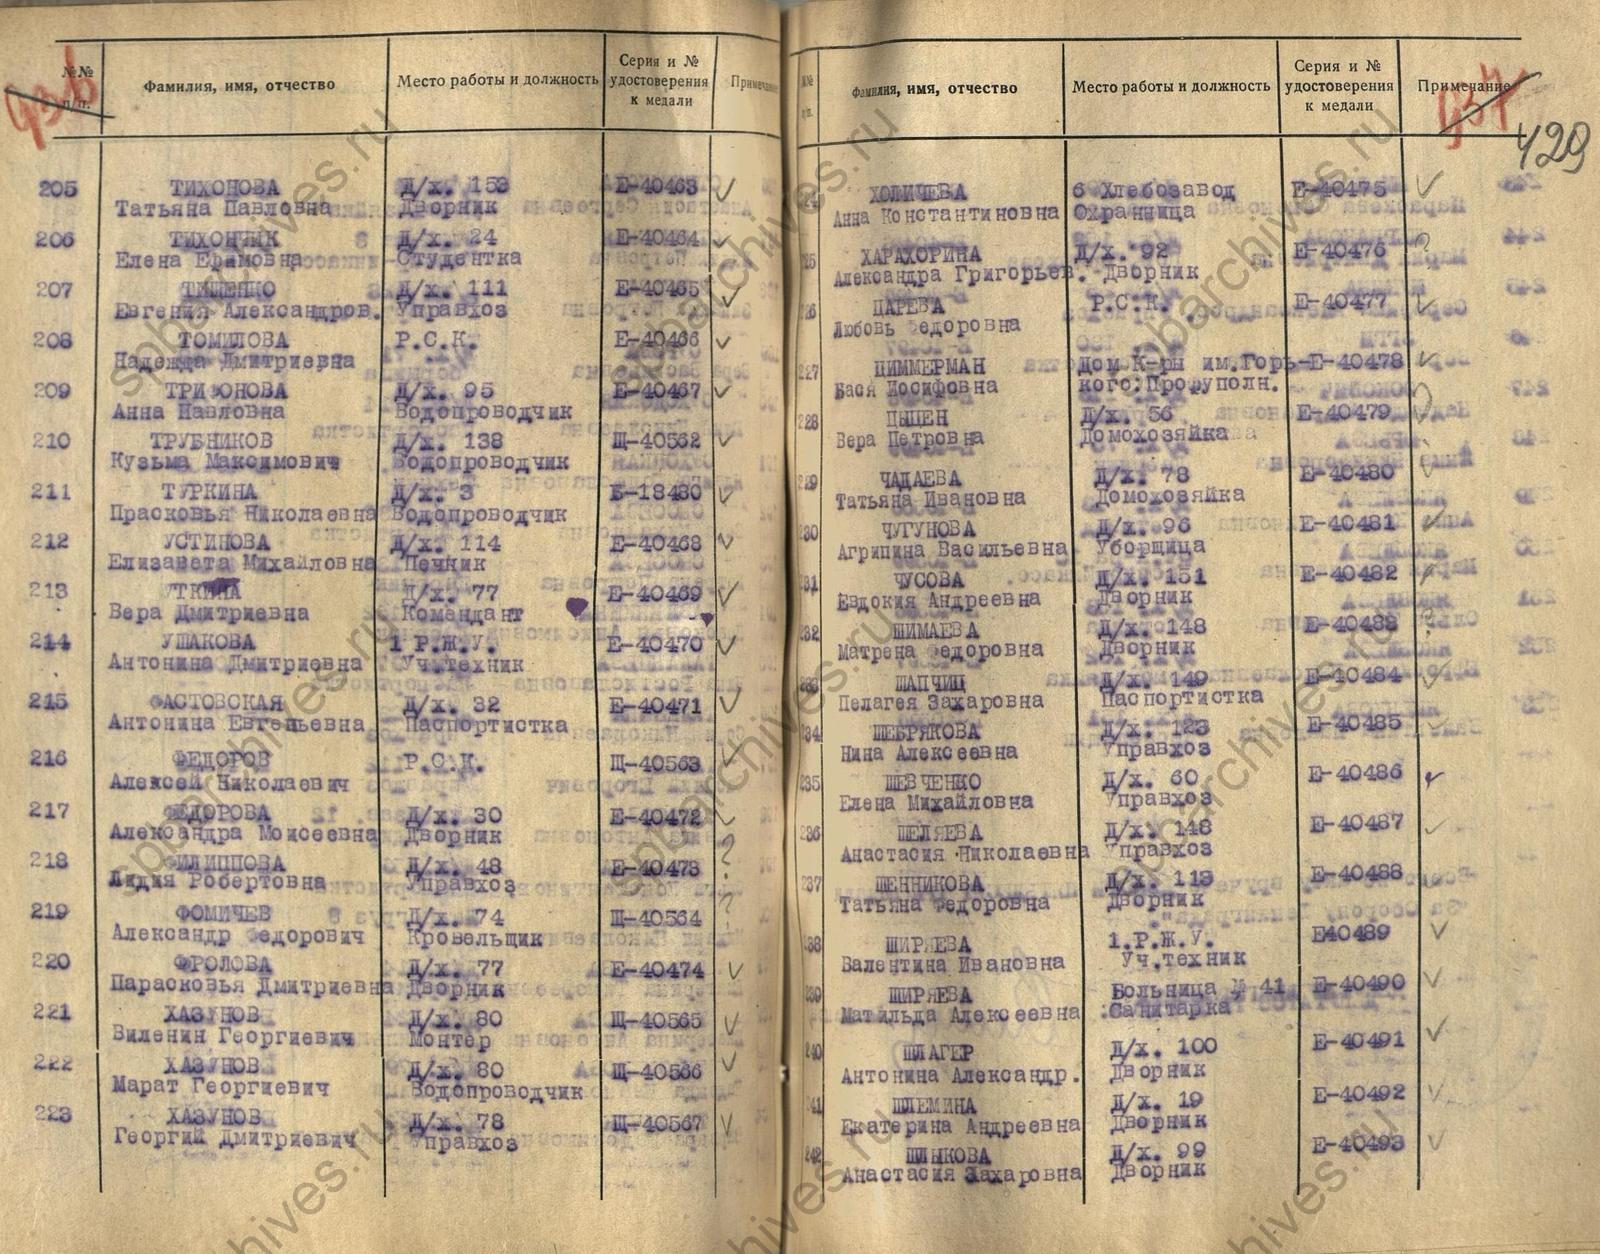 936
№№ п/п.
Фамилия, имя, отчество
Место работы и должность
Серия и № удостоверения к медали
Примечание
205 ТИХОНОВА Д/х. 153 Е-40463
Татьяна Павловна Дворник
206 ТИХОНЧИК Д/х. 24 Е-40464
Елена Ефимовна Студентка
207 ТИЩЕНКО Д/х. 111 Е-40465
Евгения Александров. Управхоз
208 ТОМИЛОВА Р.С.К. Е-40466
Надежда Дмитриевна
209 ТРИФОНОВА Д/х. 95 Е-40467
Анна Павловна Водопроводчик
210 ТРУБНИКОВ Д/х. 138 Щ-40562
Кузьма Максимович Водопроводчик
211 ТУРКИНА Д/х. 3 Б-18480
Прасковья Николаевна Водопроводчик
212 УСТИНОВА Д/х. 114 Е-40468
Елизавета Михайловна Печник
213 УТКИНА Д/х. 77 Е-40469
Вера Дмитриевна Комендант
214 УШАКОВА 1 Р.Ж.У. Е-40470
Антонина Дмитриевна Уч.техник
215 ФАСТОВСКАЯ Д/х. 32 Е-40471
Антонина Евгеньевна Паспортистка
216 ФЕДОРОВ Р.С.К. Щ-40563
Алексей Николаевич
217 ФЕДОРОВА Д/х. 30 Е-40472
Александра Моисеевна Дворник
218 ФИЛИППОВА Д/х. 48 Е-40473 ?
Лидия Робертовна Управхоз
219 ФОМИЧЕВ Д/х. 74 Щ-40564 ?
Александр Федорович Кровельщик
220 ФРОЛОВА Д/х. 77 Е-40474
Парасковья Дмитриевна Дворник
221 ХАЗУНОВ Д/х. 80 Щ-40565
Виленин Георгиевич Монтер
222 ХАЗУНОВ Д/х. 80 Щ-40566
Марат Георгиевич Водопроводчик
223 ХАЗУНОВ Д/х. 78 Щ-40567
Георгий Дмитриевич Управхоз
№№ п/п.
Фамилия, имя, отчество
Место работы и должность
Серия и № удостоверения к медали
Примечание
937
429
224 ХОЛИЧЕВА 6 Хлебозавод Е-40475
Анна Константиновна Охранница
225 ХАРАХОРИНА Д/х. 92 Е-40476 ?
Александра Григорьев. Дворник
226 ЦАРЕВА Р.С.К. Е-40477
Любовь Федоровна
227 ЦИММЕРМАН Дом К-ры им.Горь- Е-40478
Бася Иосифовна кого.Профуполн.
228 ЦЫЦЕН Д/х. 56 Е-40479 ?
Вера Петровна Домохозяйка
229 ЧАДАЕВА Д/х. 78 Е-40480
Татьяна Ивановна Домохозяйка
230 ЧУГУНОВА Д/х. 96 Е-40481
Агрипина Васильевна Уборщица
231 ЧУСОВА Д/х. 151 Е-40482
Евдокия Андреевна Дворник
232 ШИМАЕВА Д/х. 148 Е-40483 ?
Матрена Федоровна Дворник
233 ШАПЧИЦ Д/х. 149 Е-40484
Пелагея Захаровна Паспортистка
234 ШЕБРЯКОВА Д/х. 123 Е-40485
Нина Алексеевна Управхоз
235 ШЕВЧЕНКО Д/х. 60 Е-40486
Елена Михайловна Управхоз
236 ШЕЛЯЕВА Д/х. 148 Е-40487
Анастасия Николаевна Управхоз
237 ШЕННИКОВА Д/х. 113 Е-40488
Татьяна Федоровна Дворник
238 ШИРЯЕВА 1.Р.Ж.У. Е40489
Валентина Ивановна Уч.техник
239 ШИРЯЕВА Больница № 41 Е-40490
Матильда Алексеевна Санитарка
240 ШЛАГЕР Д/х. 100 Е-40491
Антонина Александр. Дворник
241 ШЛЕМИНА Д/х. 19 Е-40492
Екатерина Андреевна Дворник
242 ШЛЫКОВА Д/х. 99 Е-40493
Анастасия Захаровна Дворник
spbarchives.ru